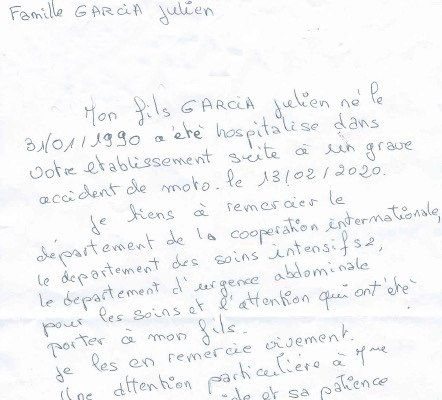 Famille GARCIA Julien
Mon fils GARCIA Julien né le
31/01/1990 a été hospitalise dans
votre etablissement suite à un grave
accident de moto. le 13/02/2020.
Je tiens à remercier le
département de la cooperation internationale,
le departement des soins intensifs 2,
le departement d'urgence abdominale
pour les soins et l'attention qui ont été
porter à mon fils.
Je les en remercie vivement.
Une attention particulière à Mme
et sa patience